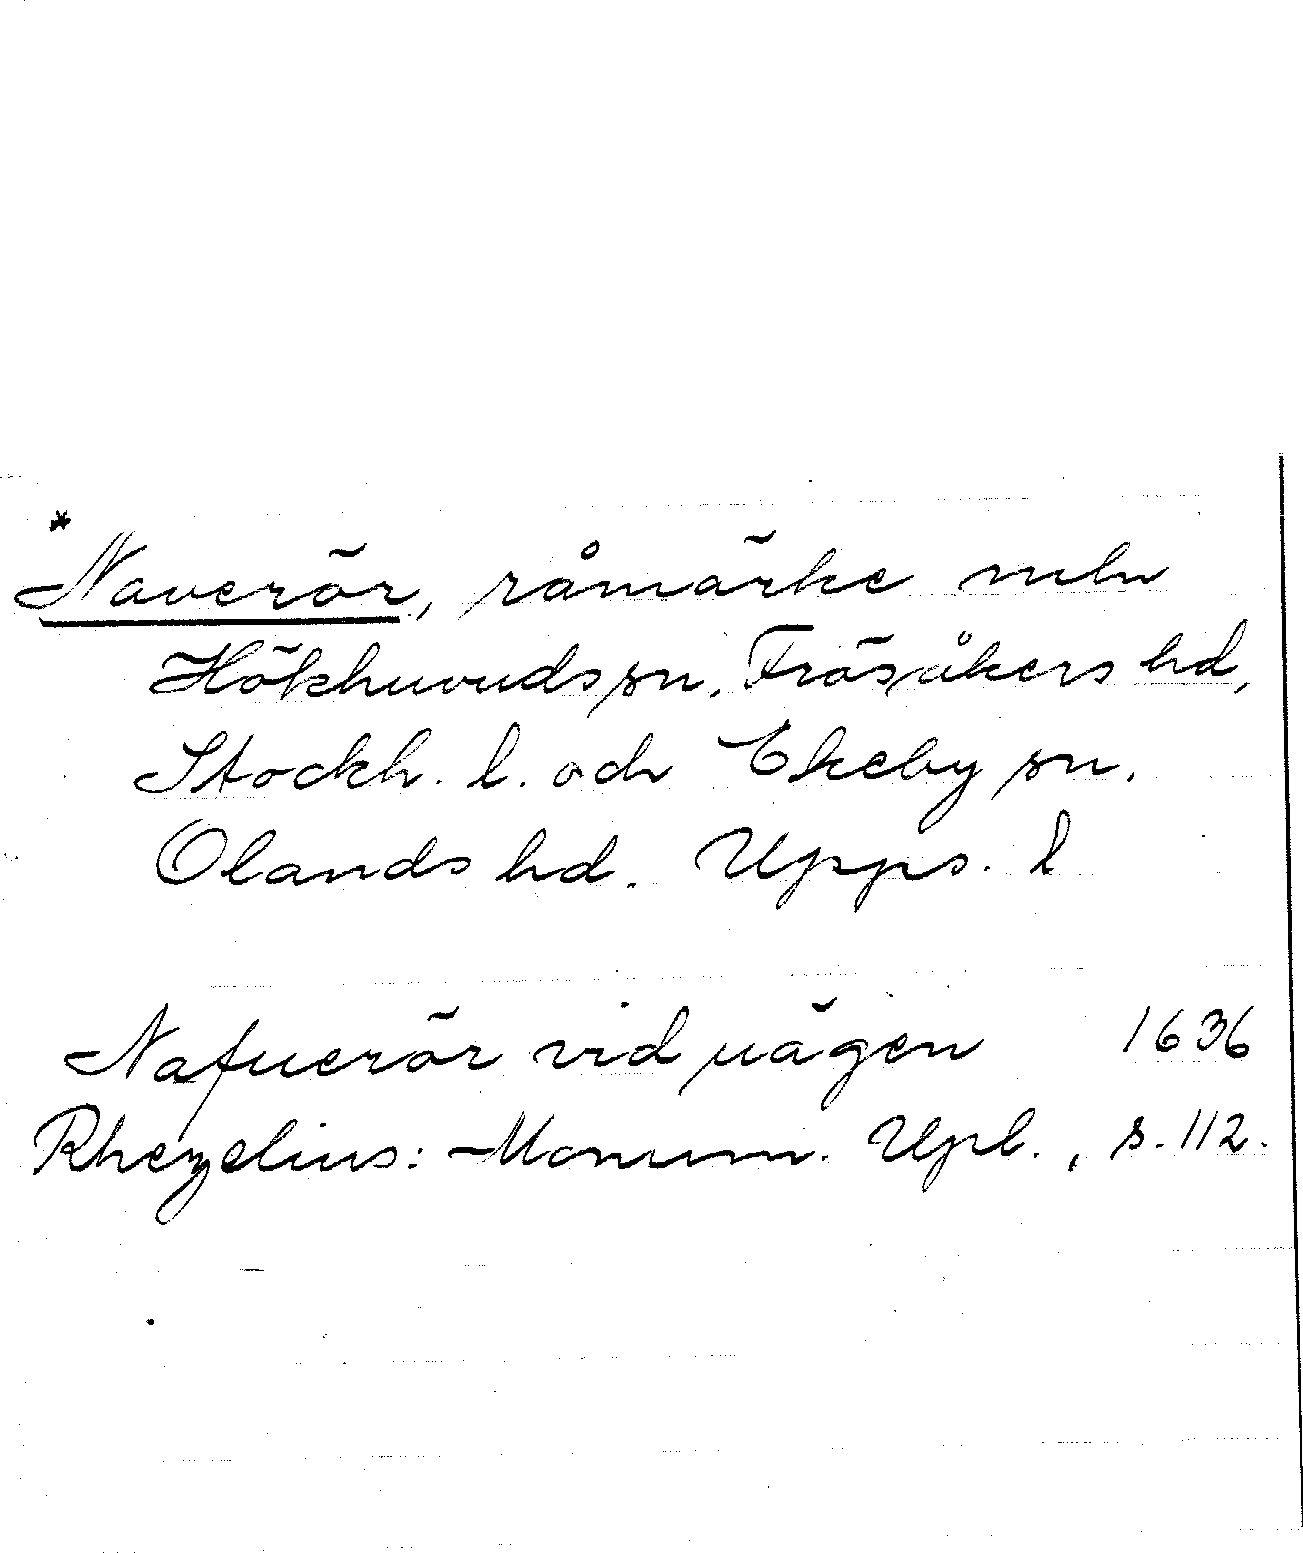 *
Naverör, råmärke meln
Hökhuvuds sn, Frösåkers hd,
Stockh. l. och Ekeby sn.
Olands hd. Upps. l
Nafuerör vid uägen 1636
Rhezelius: Monum. Upl., s. 112.